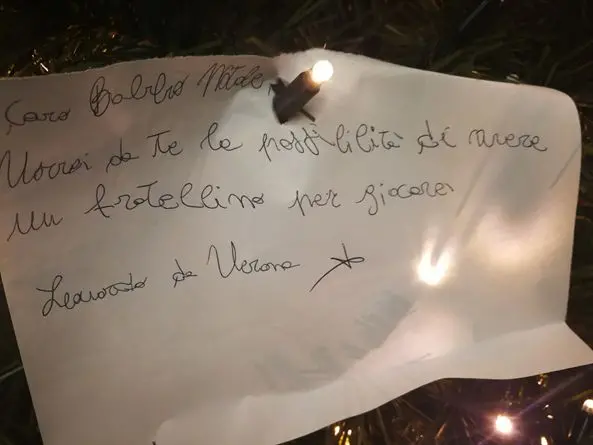 Caro Babbo Natale,
Vorrei da Te la possibilità di avere
un fratellino per giocare.
Leonardo da Verona